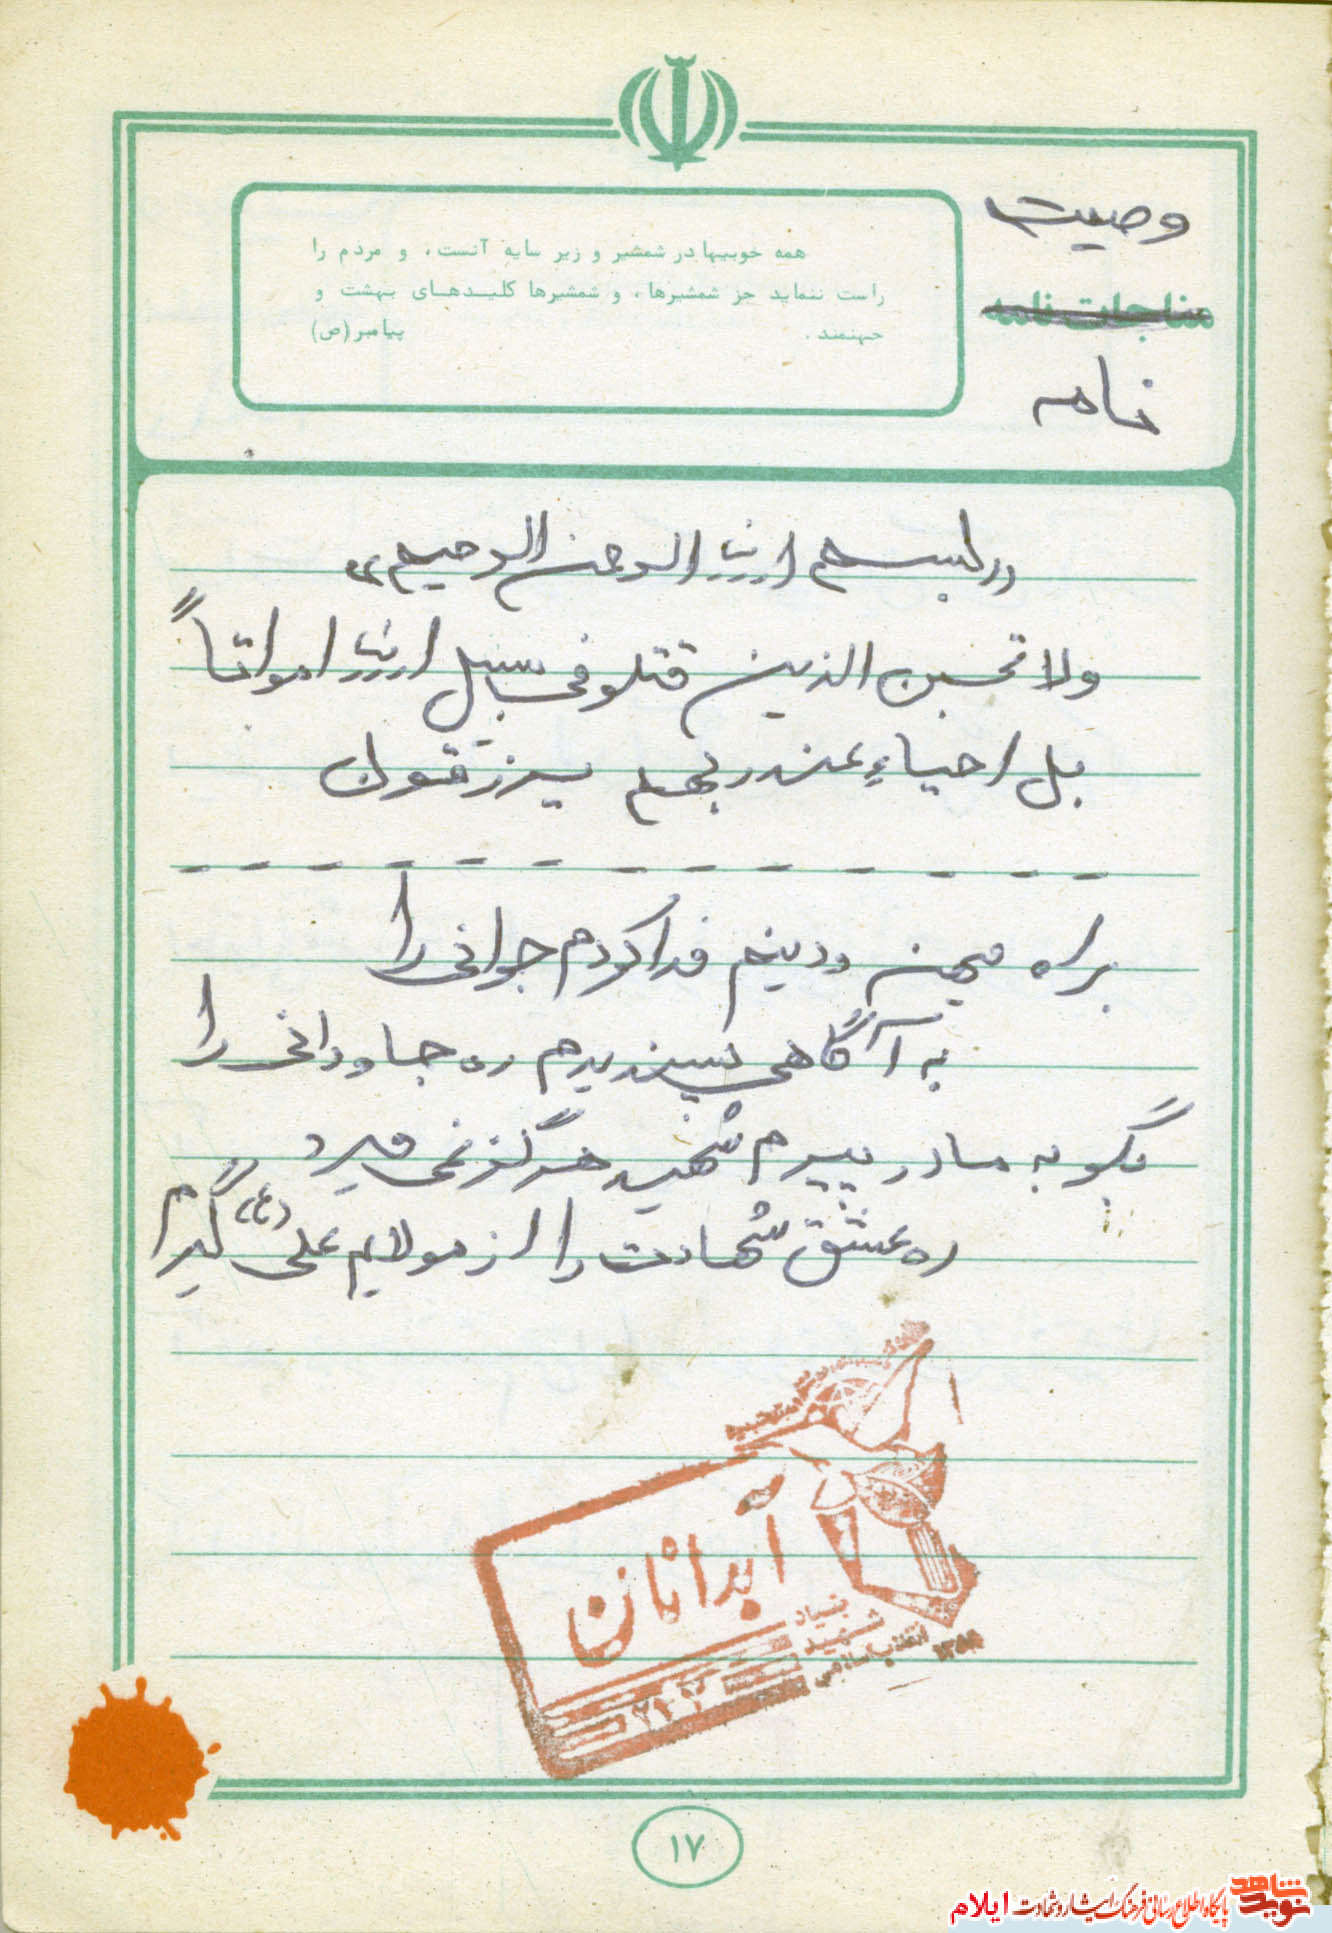 وصیت
مناجات نامه
نامه
همه خوبیها در شمشیر و زیر سایه آنست، و مردم را
راست ننماید جز شمشیرها، و شمشیرها کلیدهای بهشت و
جهنمند. پیامبر(ص)
«بسم الله الرحمن الرحیم»
ولا تحسبن الذین قتلو فی سبیل الله امواتاً
بل احیاء عند ربهم یرزقون
براه میهن و دینم فدا کردم جوانی را
به آگاهی پسندیدم ره جاودانی را
بگو به مادر پیرم شهید هرگز نمی میرد
ره عشق شهادت را از مولایم علی (ع) گیرم
آبدانان
بنیاد
شهید
انقلاب اسلامی
۱۳۵۸
۱۷
نوید شاهد
پایگاه اطلاع رسانی فرهنگ ایثار و شهادت ایلام